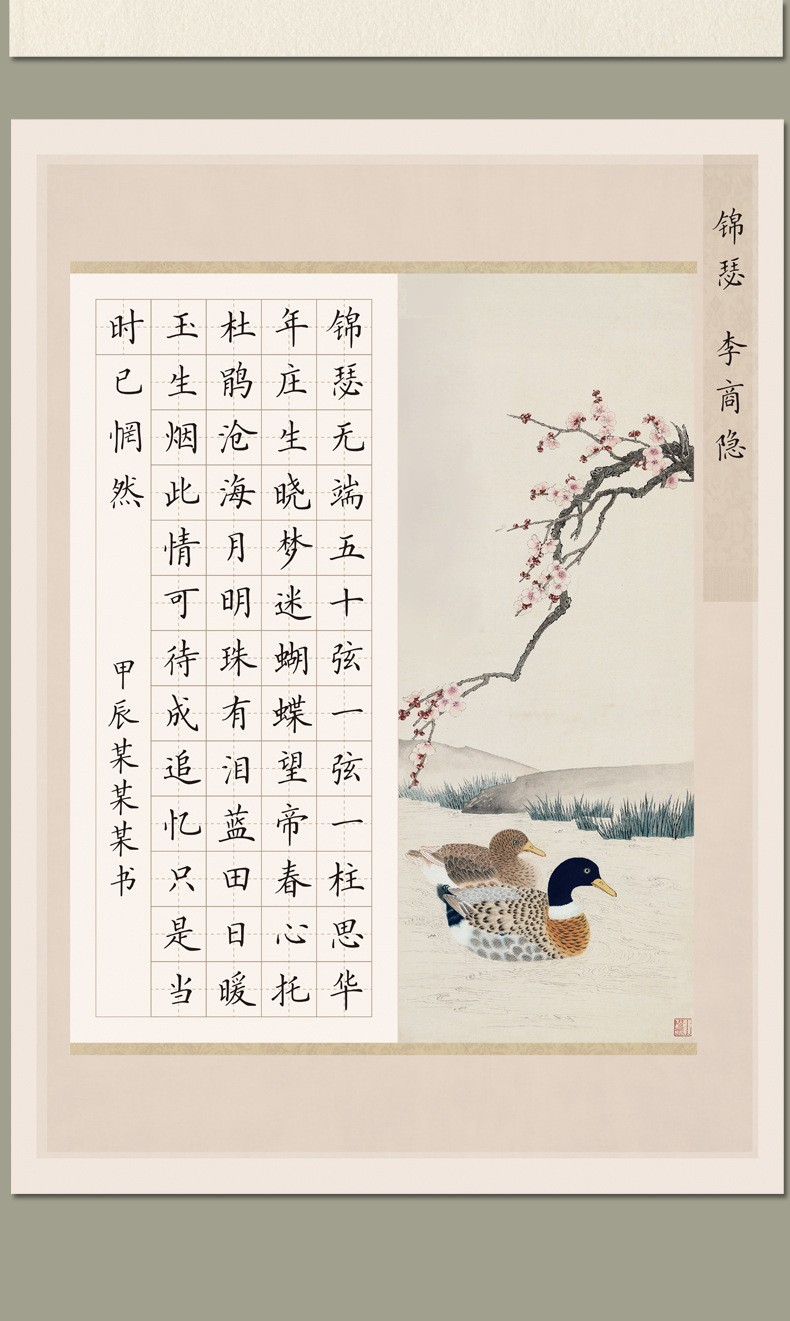 锦瑟 李商隐
锦瑟无端五十弦一弦一柱思华
年庄生晓梦迷蝴蝶望帝春心托
杜鹃沧海月明珠有泪蓝田日暖
玉生烟此情可待成追忆只是当
时已惘然
甲辰某某某书